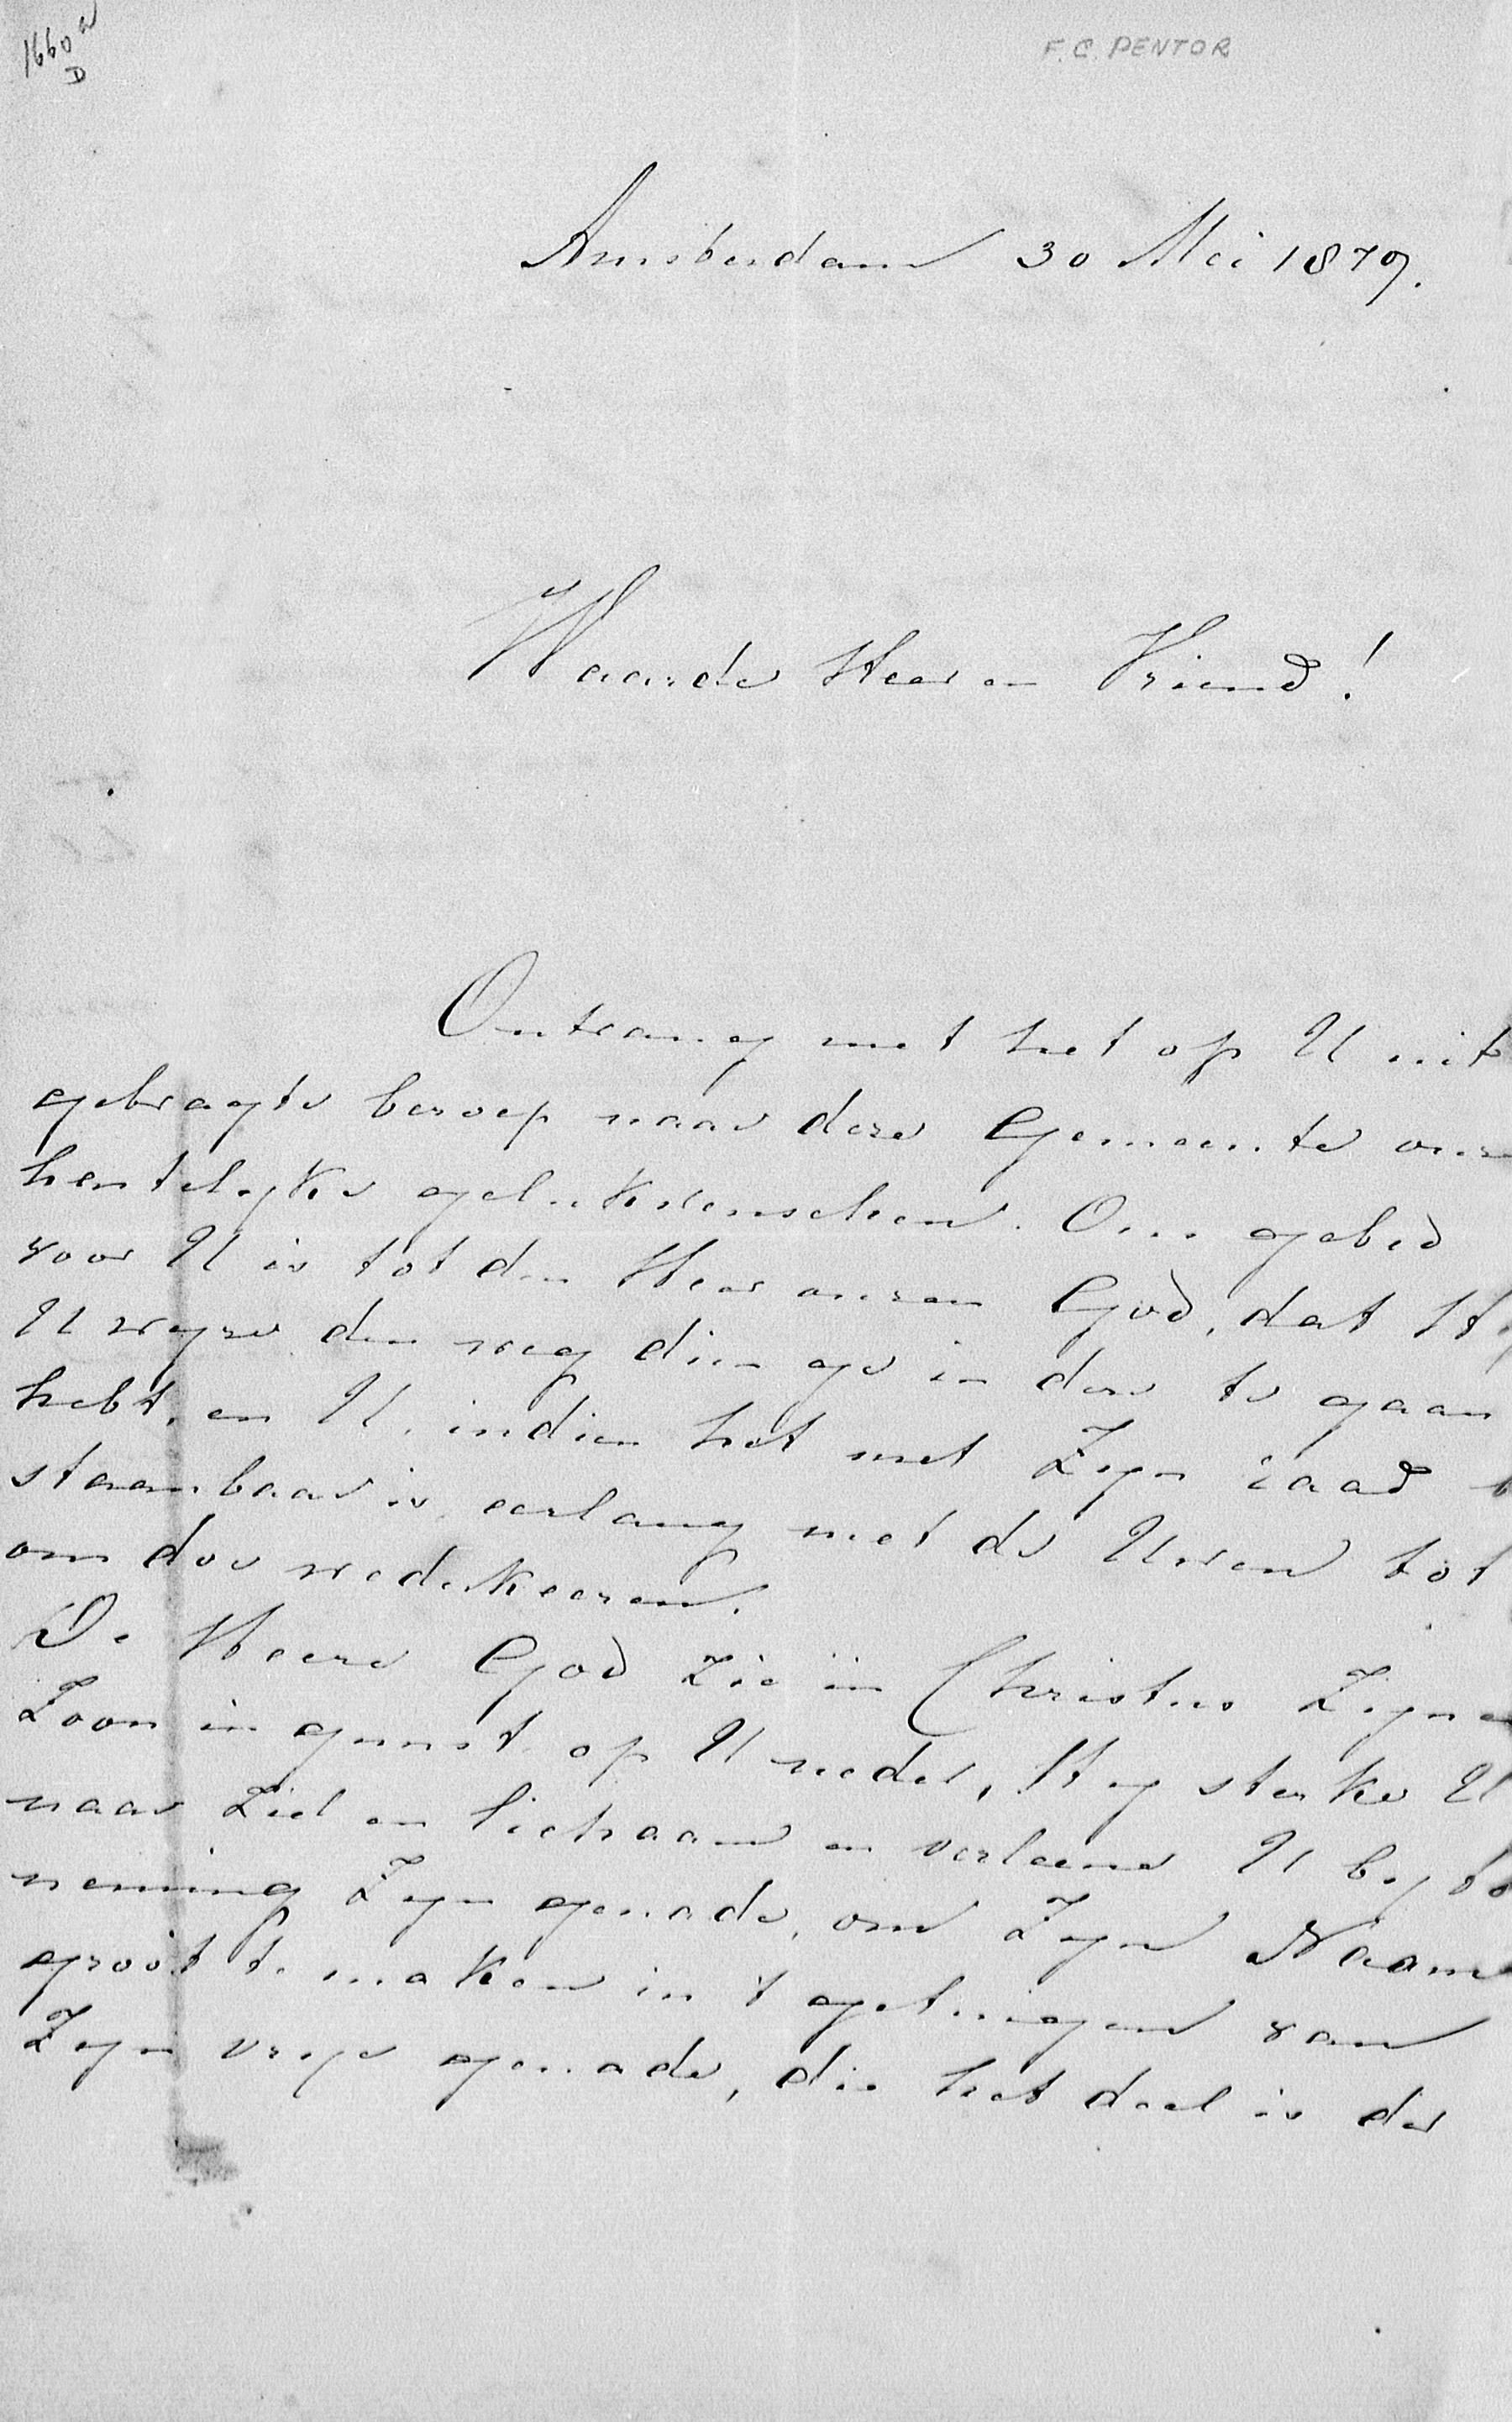 1660a
D
F. C. PENTOR
Amsterdam 30 Mei 1879.
Waarde Heer en Vriend!
Ontvang met het op U uit
gebragte beroep naar deze Gemeente onze
hertelyke gelukwenschen. Ons gebed
voor U is tot den Heer onzen God, dat Hy
U wyze den weg dien ge in dezen te gaan
hebt, en U, indien het met Zyn raad
staanbaar is, eerlang met de Uwen tot
ons doe wederkeeren.
De Heere God zie in Christus Zynen
Zoon in gunst op U neder, Hy sterke U
naar ziel en lichaam en verleene U by
neming Zyn genade, om Zyn Naam
groot te maken in 't getuigen van
Zyn vrye genade, die het deel is der